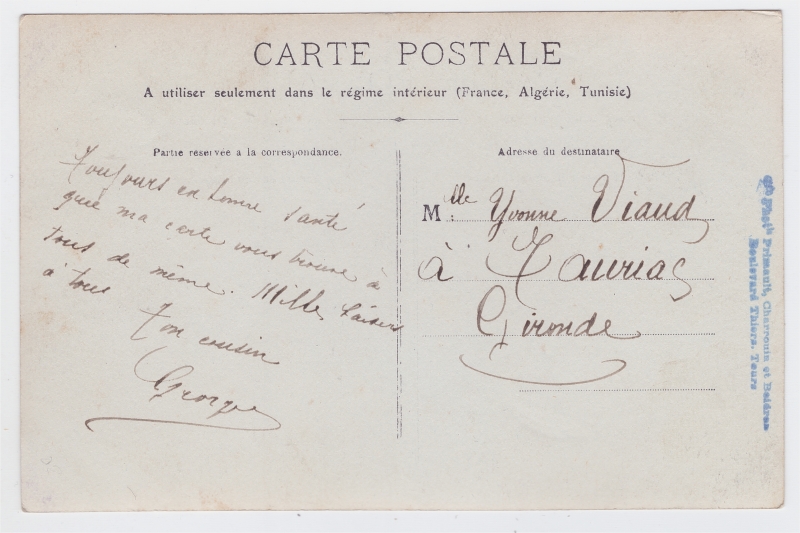 CARTE POSTALE
A utiliser seulement dans le régime intérieur (France, Algérie, Tunisie)
Partie réservée a la correspondance.
Toujours en bonne santé
que ma carte vous trouve à
tous de même. Mille baisers
à tous
Ton cousin
Georges
Adresse du destinataire
Mlle Yvonne Viaud
à Tauriac
Gironde
Primault, Charrouin et
Boulevard Thiers. Tours